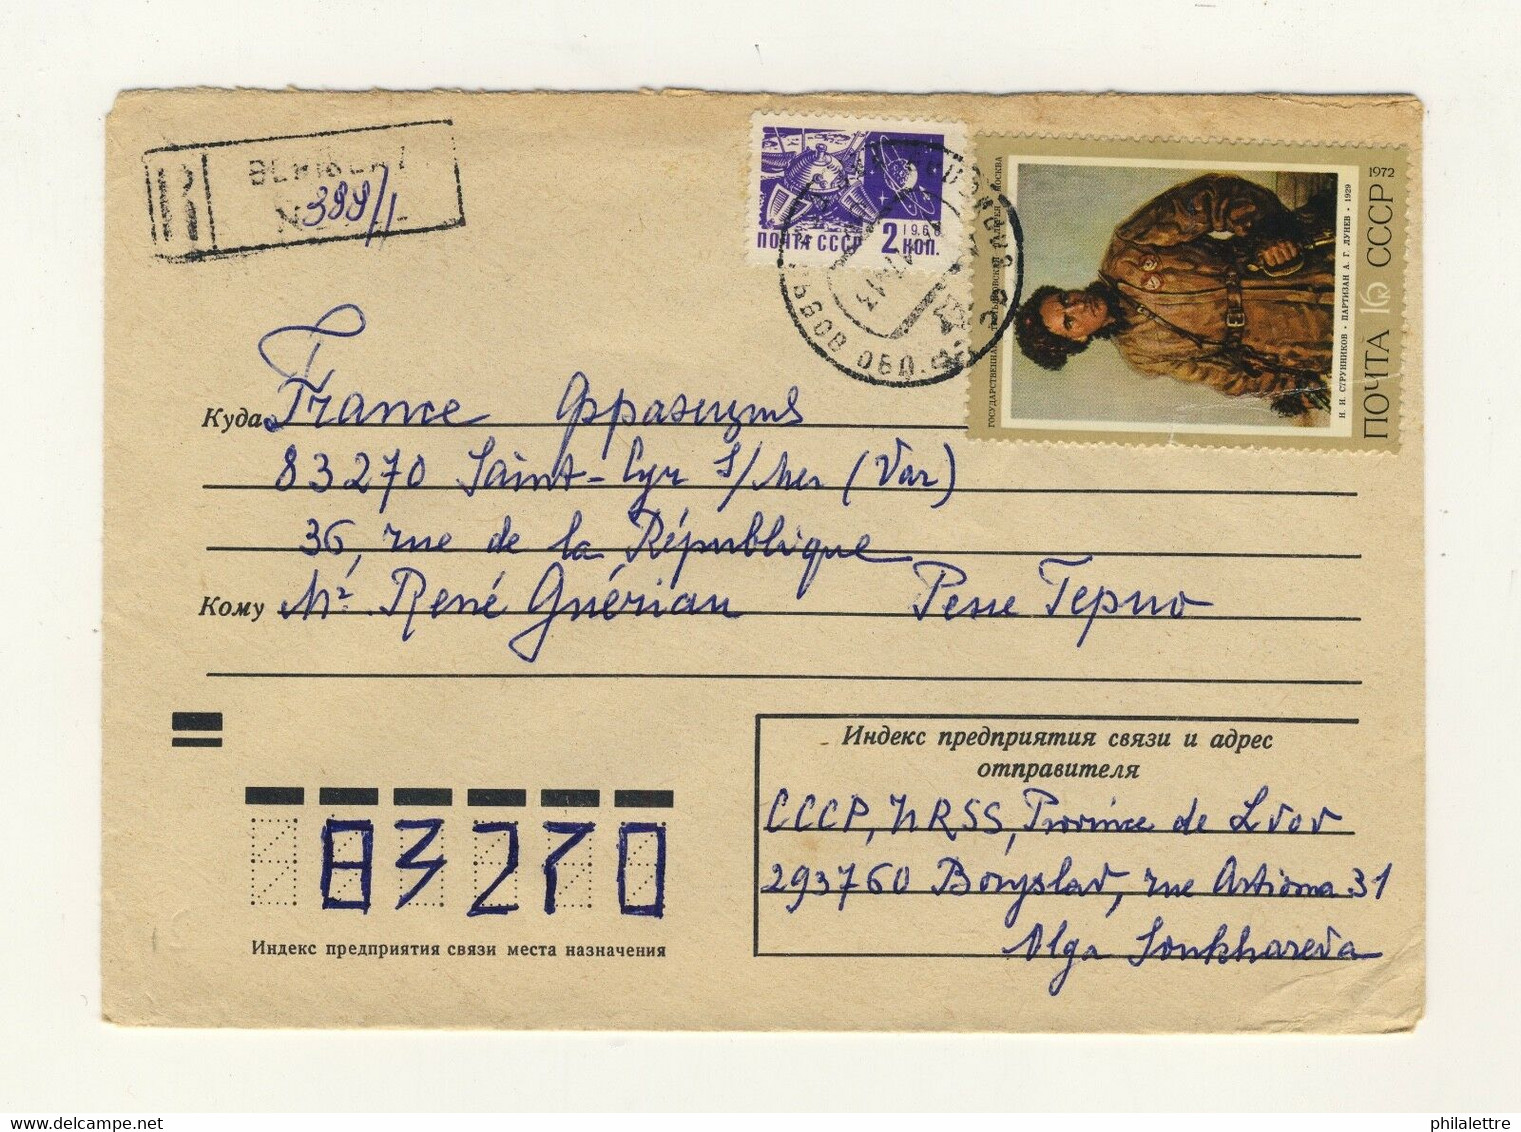 R
№ 399/1-
ПОЧТА СССР 2 КОП.
1966
ЛЬВОВ. ОБЛ.
1972
ПОЧТА 16 К СССР
Н. И. СТРУННИКОВ · ПАРТИЗАН А. Г. ЛУНЕВ · 1929
Куда France Франция
83270 Saint-Cyr s/Mer (Var)
36, rue de la République
Кому Mr. René Guérian Рене Герио
Индекс предприятия связи и адрес
отправителя
СССР, URSS, Province de Lvov
293760 Boryslav, rue Artioma 31
Olga Soukhareva
83270
Индекс предприятия связи места назначения
philalettre